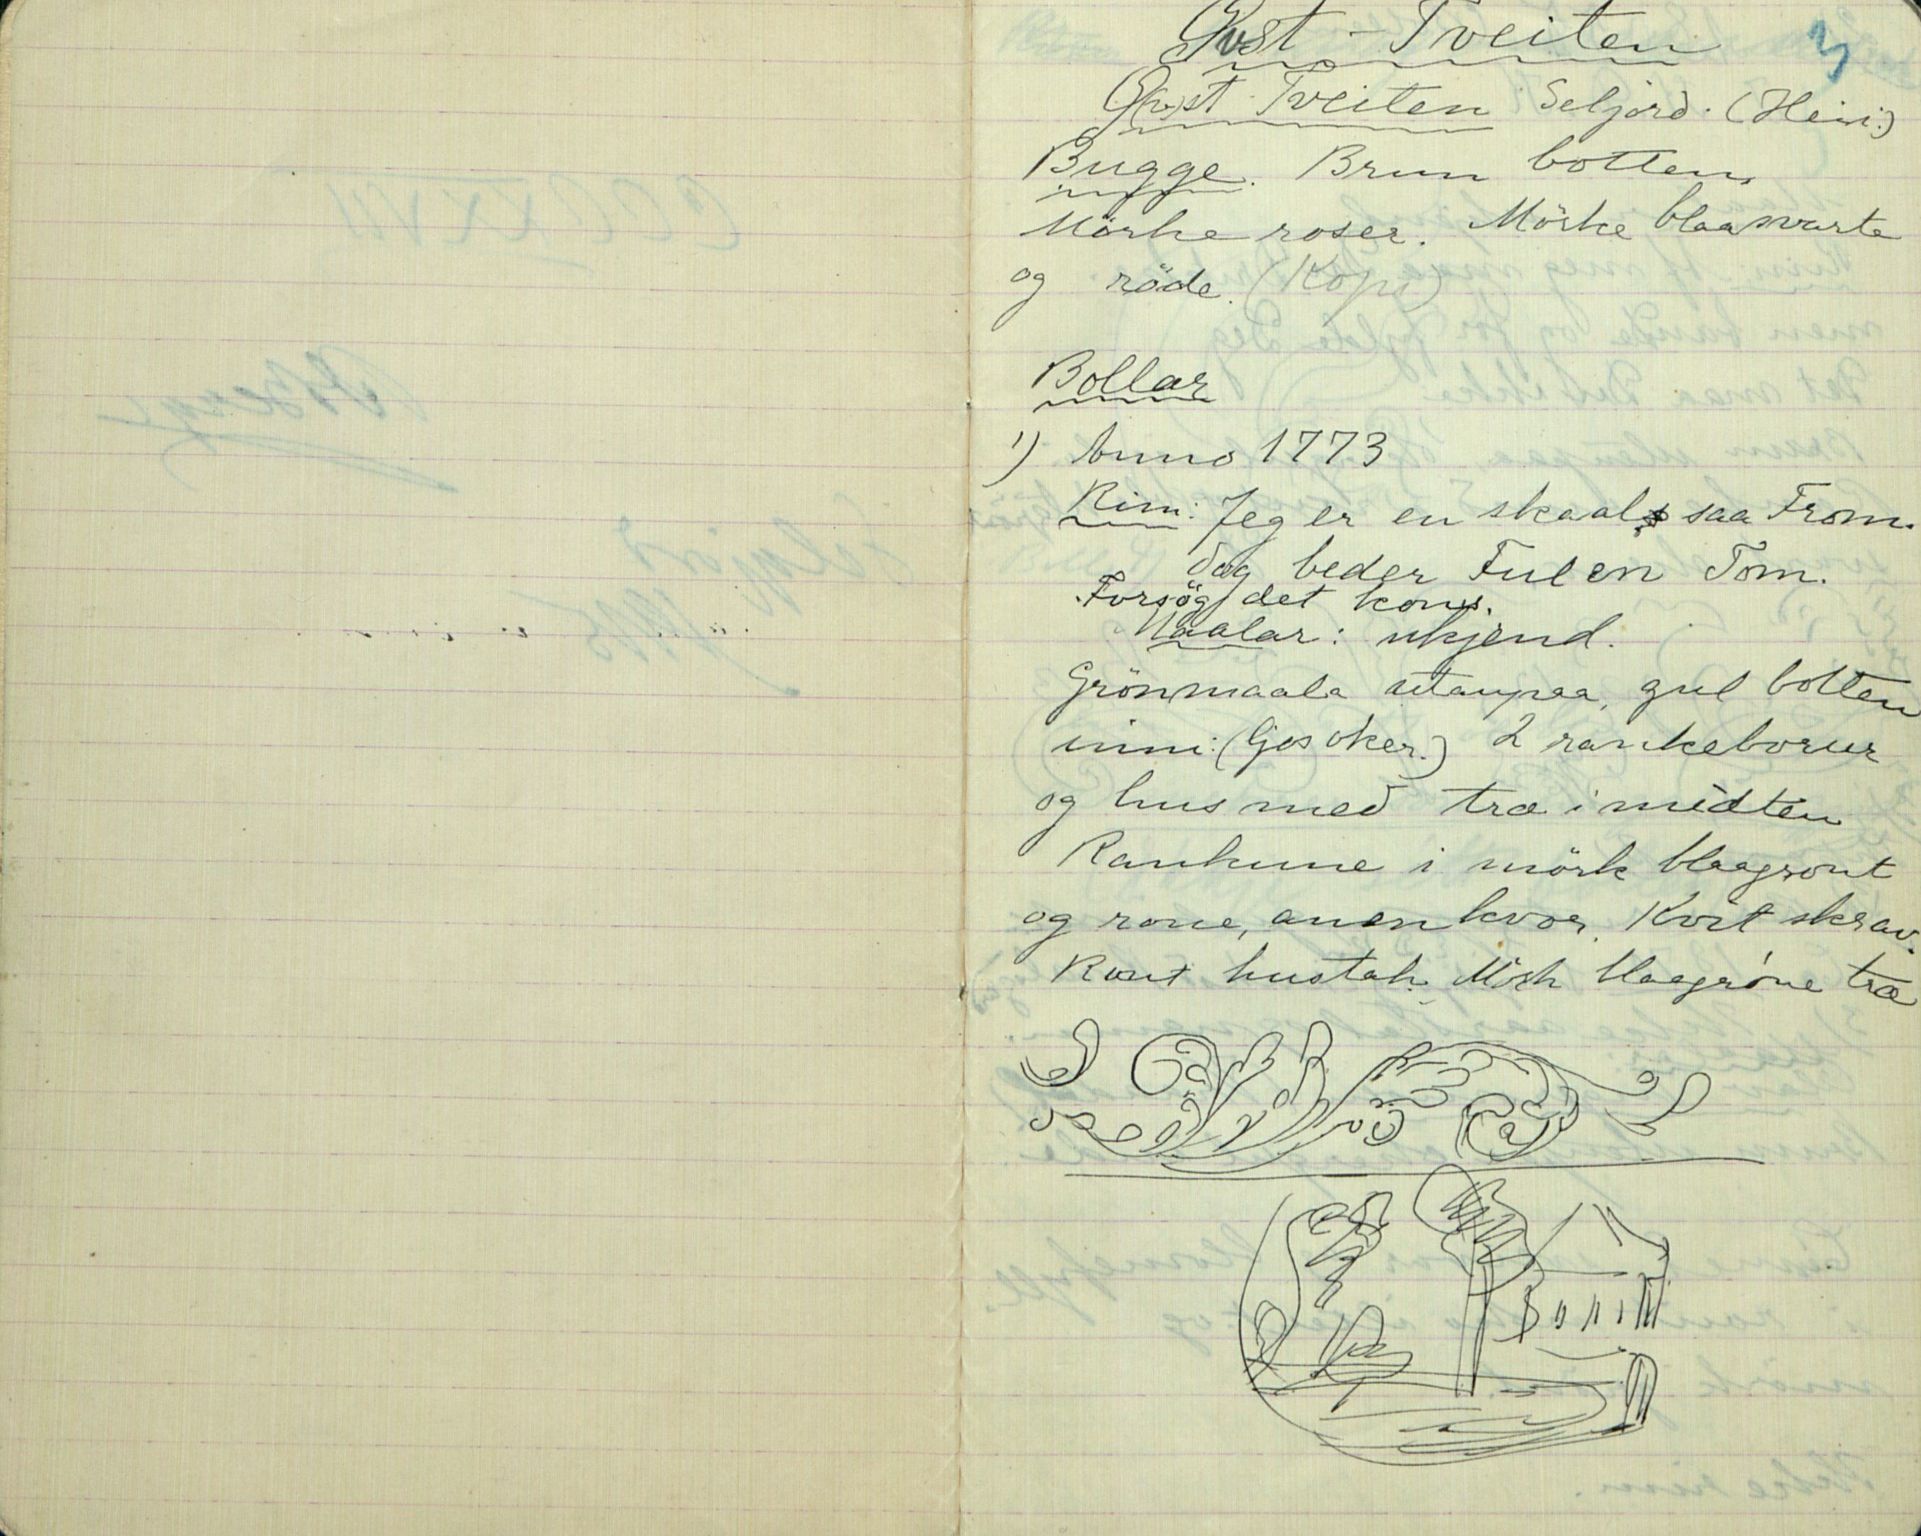 Qvst - Tveiten
3
Q(v)st Tveiten Seljord. (Heim:)
Bugge. Brun botten
Mörke roser. Mörke blaasvarte
og röde. (Kopi)
Bollar
1) Anno 1773
Rim: Jeg er en skaal saa From.
Jag beder Ful en Tom.
Forsög det kom.
Maalar: ukjend.
Grönmaala utanpaa, gul botten
inni: (Ljos oker.) 2 rankeborur
og hus med træ i midten
Rankune i mörk blaagrönt
og rone, anen kvor. Kvit skrav.
Rout hustak. Mörk blaagröne træ